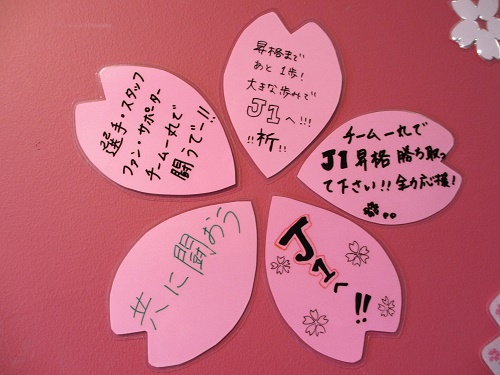 昇格まで
あと1歩!
大きな歩みで
J1
へ!!!
!!祈!!
選手・スタッフ
ファン・サポーター
チーム一丸で
闘うでー!!
チーム一丸で
J1昇格 勝ち取っ
て下さい!! 全力応援!
共に闘おう
J1へ!!